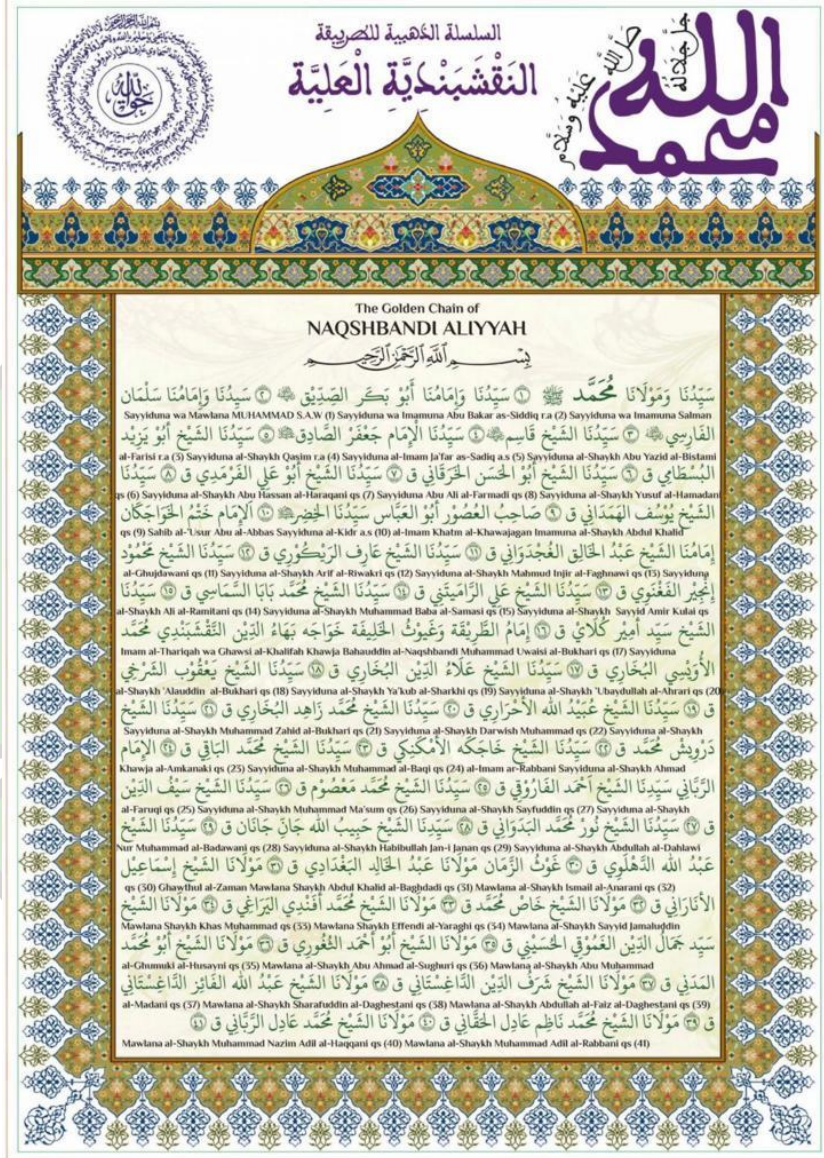 السلسلة الذهبية للطريقة
النَقْشبَنْدِيَّة الْعَلِيَّة
الله
محمد
جل جلاله
The Golden Chain of
NAQSHBANDI ALIYYAH
بِسْمِ ٱللَّهِ ٱلرَّحْمَٰنِ ٱلرَّحِيمِ
سَيِّدُنَا وَمَوْلَانَا مُحَمَّد ﷺ ① سَيِّدُنَا وَإِمَامُنَا أَبُو بَكَر الصِّدِّيْق ② سَيِّدُنَا وَإِمَامُنَا سَلْمَان
Sayyiduna wa Mawlana MUHAMMAD S.A.W (1) Sayyiduna wa Imamuna Abu Bakar as-Siddiq r.a (2) Sayyiduna wa Imamuna Salman
الفَارِسِي ③ سَيِّدُنَا الشَّيْخ قَاسِم ④ سَيِّدُنَا الْإِمَام جَعْفَرْ الصَّادِق ⑤ سَيِّدُنَا الشَّيْخ أَبُو يَزِيْد
al-Farisi r.a (3) Sayyiduna al-Shaykh Qasim r.a (4) Sayyiduna al-Imam Ja'far as-Sadiq a.s (5) Sayyiduna al-Shaykh Abu Yazid al-Bistami
البُسْطَامِي ق ⑥ سَيِّدُنَا الشَّيْخ أَبُوْ الحَسَن الخَرَقَانِي ق ⑦ سَيِّدُنَا الشَّيْخ أَبُوْ عَلِي الفَرْمَدِي ق ⑧ سَيِّدُنَا
qs (6) Sayyiduna al-Shaykh Abu Hassan al-Haraqani qs (7) Sayyiduna Abu Ali al-Farmadi qs (8) Sayyiduna al-Shaykh Yusuf al-Hamadani
الشَّيْخ يُوْسُف الهَمَدَانِي ق ⑨ صَاحِبُ العُصُوْر أَبُوْ العَبَّاس سَيِّدُنَا الخِضِر ⑩ الْإِمَام خَتْمُ الخَوَاجَكَان
qs (9) Sahib al-'Usur Abu al-Abbas Sayyiduna al-Kidr a.s (10) al-Imam Khatm al-Khawajagan Imamuna al-Shaykh Abdul Khalid
إِمَامُنَا الشَّيْخ عَبْدُ الخَالِق الغُجْدَوَانِي ق ⑪ سَيِّدُنَا الشَّيْخ عَارِف الرَّيْكُوْرِي ق ⑫ سَيِّدُنَا الشَّيْخ مَحْمُوْد
al-Ghujdawani qs (11) Sayyiduna al-Shaykh Arif al-Riwakri qs (12) Sayyiduna al-Shaykh Mahmud Injir al-Faghnawi qs (13) Sayyiduna
إِنْجِيْر الفَغْنَوِي ق ⑬ سَيِّدُنَا الشَّيْخ عَلِي الرَّامِيْتَنِي ق ⑭ سَيِّدُنَا الشَّيْخ مُحَمَّد بَابَا السَّمَاسِي ق ⑮ سَيِّدُنَا
al-Shaykh Ali al-Ramitani qs (14) Sayyiduna al-Shaykh Muhammad Baba al-Samasi qs (15) Sayyiduna al-Shaykh Sayyid Amir Kulai qs
الشَّيْخ سَيِّد أَمِيْر كُلَالِي ق ⑯ إِمَامُ الطَّرِيْقَة وَغَيْوثُ الخَلِيْفَة خَوَاجَه بَهَاءُ الدِّين النَّقْشَبَنْدِي مُحَمَّد
Imam al-Thariqah wa Ghawsi al-Khalifah Khawja Bahauddin al-Naqshbandi Muhammad Uwaisi al-Bukhari qs (17) Sayyiduna
الأُوَيْسِي البُخَارِي ق ⑰ سَيِّدُنَا الشَّيْخ عَلَاءُ الدِّيْن البُخَارِي ق ⑱ سَيِّدُنَا الشَّيْخ يَعْقُوْب الشَّرْخِي
al-Shaykh 'Alauddin al-Bukhari qs (18) Sayyiduna al-Shaykh Ya'kub al-Sharkhi qs (19) Sayyiduna al-Shaykh 'Ubaydullah al-Ahrari qs (20)
ق ⑲ سَيِّدُنَا الشَّيْخ عُبَيْدُ الله الأَحْرَارِي ق ⑳ سَيِّدُنَا الشَّيْخ مُحَمَّد زَاهِد البُخَارِي ق ㉑ سَيِّدُنَا الشَّيْخ
Sayyiduna al-Shaykh Muhammad Zahid al-Bukhari qs (21) Sayyiduna al-Shaykh Darwish Muhammad qs (22) Sayyiduna al-Shaykh
دَرْوِيْش مُحَمَّد ق ㉒ سَيِّدُنَا الشَّيْخ خَاجَكَه الأَمْكَنَكِي ق ㉓ سَيِّدُنَا الشَّيْخ مُحَمَّد البَاقِي ق ㉔ الإِمَام
Khawja al-Amkanaki qs (23) Sayyiduna al-Shaykh Muhammad al-Baqi qs (24) al-Imam ar-Rabbani Sayyiduna al-Shaykh Ahmad
الرَّبَّانِي سَيِدِنَا الشَّيْخ أَحْمَد الفَارُوْقِي ق ㉕ سَيِّدُنَا الشَّيْخ مُحَمَّد مَعْصُوْم ق ㉖ سَيِّدُنَا الشَّيْخ سَيْفُ الدِّيْن
al-Faruqi qs (25) Sayyiduna al-Shaykh Muhammad Ma'sum qs (26) Sayyiduna al-Shaykh Sayfuddin qs (27) Sayyiduna al-Shaykh
ق ㉗ سَيِّدُنَا الشَّيْخ نُوْر مُحَمَّد البَدَوَانِي ق ㉘ سَيِّدِنَا الشَّيْخ حَبِيب الله جَانِ جَانَان ق ㉙ سَيِّدُنَا الشَّيْخ
Nur Muhammad al-Badawani qs (28) Sayyiduna al-Shaykh Habibullah Jan-i Janan qs (29) Sayyiduna al-Shaykh Abdullah al-Dahlawi
عَبْدُ الله الدَّهْلَوِي ق ㉚ غَوْثُ الزَّمَان مَوْلَانَا عَبْدُ الخَالِد البَغْدَادِي ق ㉛ مَوْلَانَا الشَّيْخ إِسْمَاعِيْل
qs (30) Ghawthul al-Zaman Mawlana Shaykh Abdul Khalid al-Baghdadi qs (31) Mawlana al-Shaykh Ismail al-Anarani qs (32)
الأَنَارَانِي ق ㉜ مَوْلَانَا الشَّيْخ خَاصْ مُحَمَّد ق ㉝ مَوْلَانَا الشَّيْخ مُحَمَّد أَفَنْدِي اليَرَاغِي ق ㉞ مَوْلَانَا الشَّيْخ
Mawlana Shaykh Khas Muhammad qs (33) Mawlana Shaykh Effendi al-Yaraghi qs (34) Mawlana al-Shaykh Sayyid Jamaluddin
سَيِّد جَمَالُ الدِّيْن الغُمُوْقِي الحُسَيْنِي ق ㉟ مَوْلَانَا الشَّيْخ أَبُوْ أَحْمَد الثُّغُوْرِي ق ㊱ مَوْلَانَا الشَّيْخ أَبُوْ مُحَمَّد
al-Ghumuki al-Husayni qs (35) Mawlana al-Shaykh Abu Ahmad al-Sughuri qs (36) Mawlana al-Shaykh Abu Muhammad
المَدَنِي ق ㊲ مَوْلَانَا الشَّيْخ شَرَفُ الدِّيْن الدَّاغِسْتَانِي ق ㊳ مَوْلَانَا الشَّيْخ عَبْدُ الله الفَائِز الدَّاغِسْتَانِي
al-Madani qs (37) Mawlana al-Shaykh Sharafuddin al-Daghestani qs (38) Mawlana al-Shaykh Abdullah al-Faiz al-Daghestani qs (39)
ق ㊴ مَوْلَانَا الشَّيْخ مُحَمَّد نَاظِم عَادِل الحَقَّانِي ق ㊵ مَوْلَانَا الشَّيْخ مُحَمَّد عَادِل الرَّبَّانِي ق ㊶
Mawlana al-Shaykh Muhammad Nazim Adil al-Haqqani qs (40) Mawlana al-Shaykh Muhammad Adil al-Rabbani qs (41)